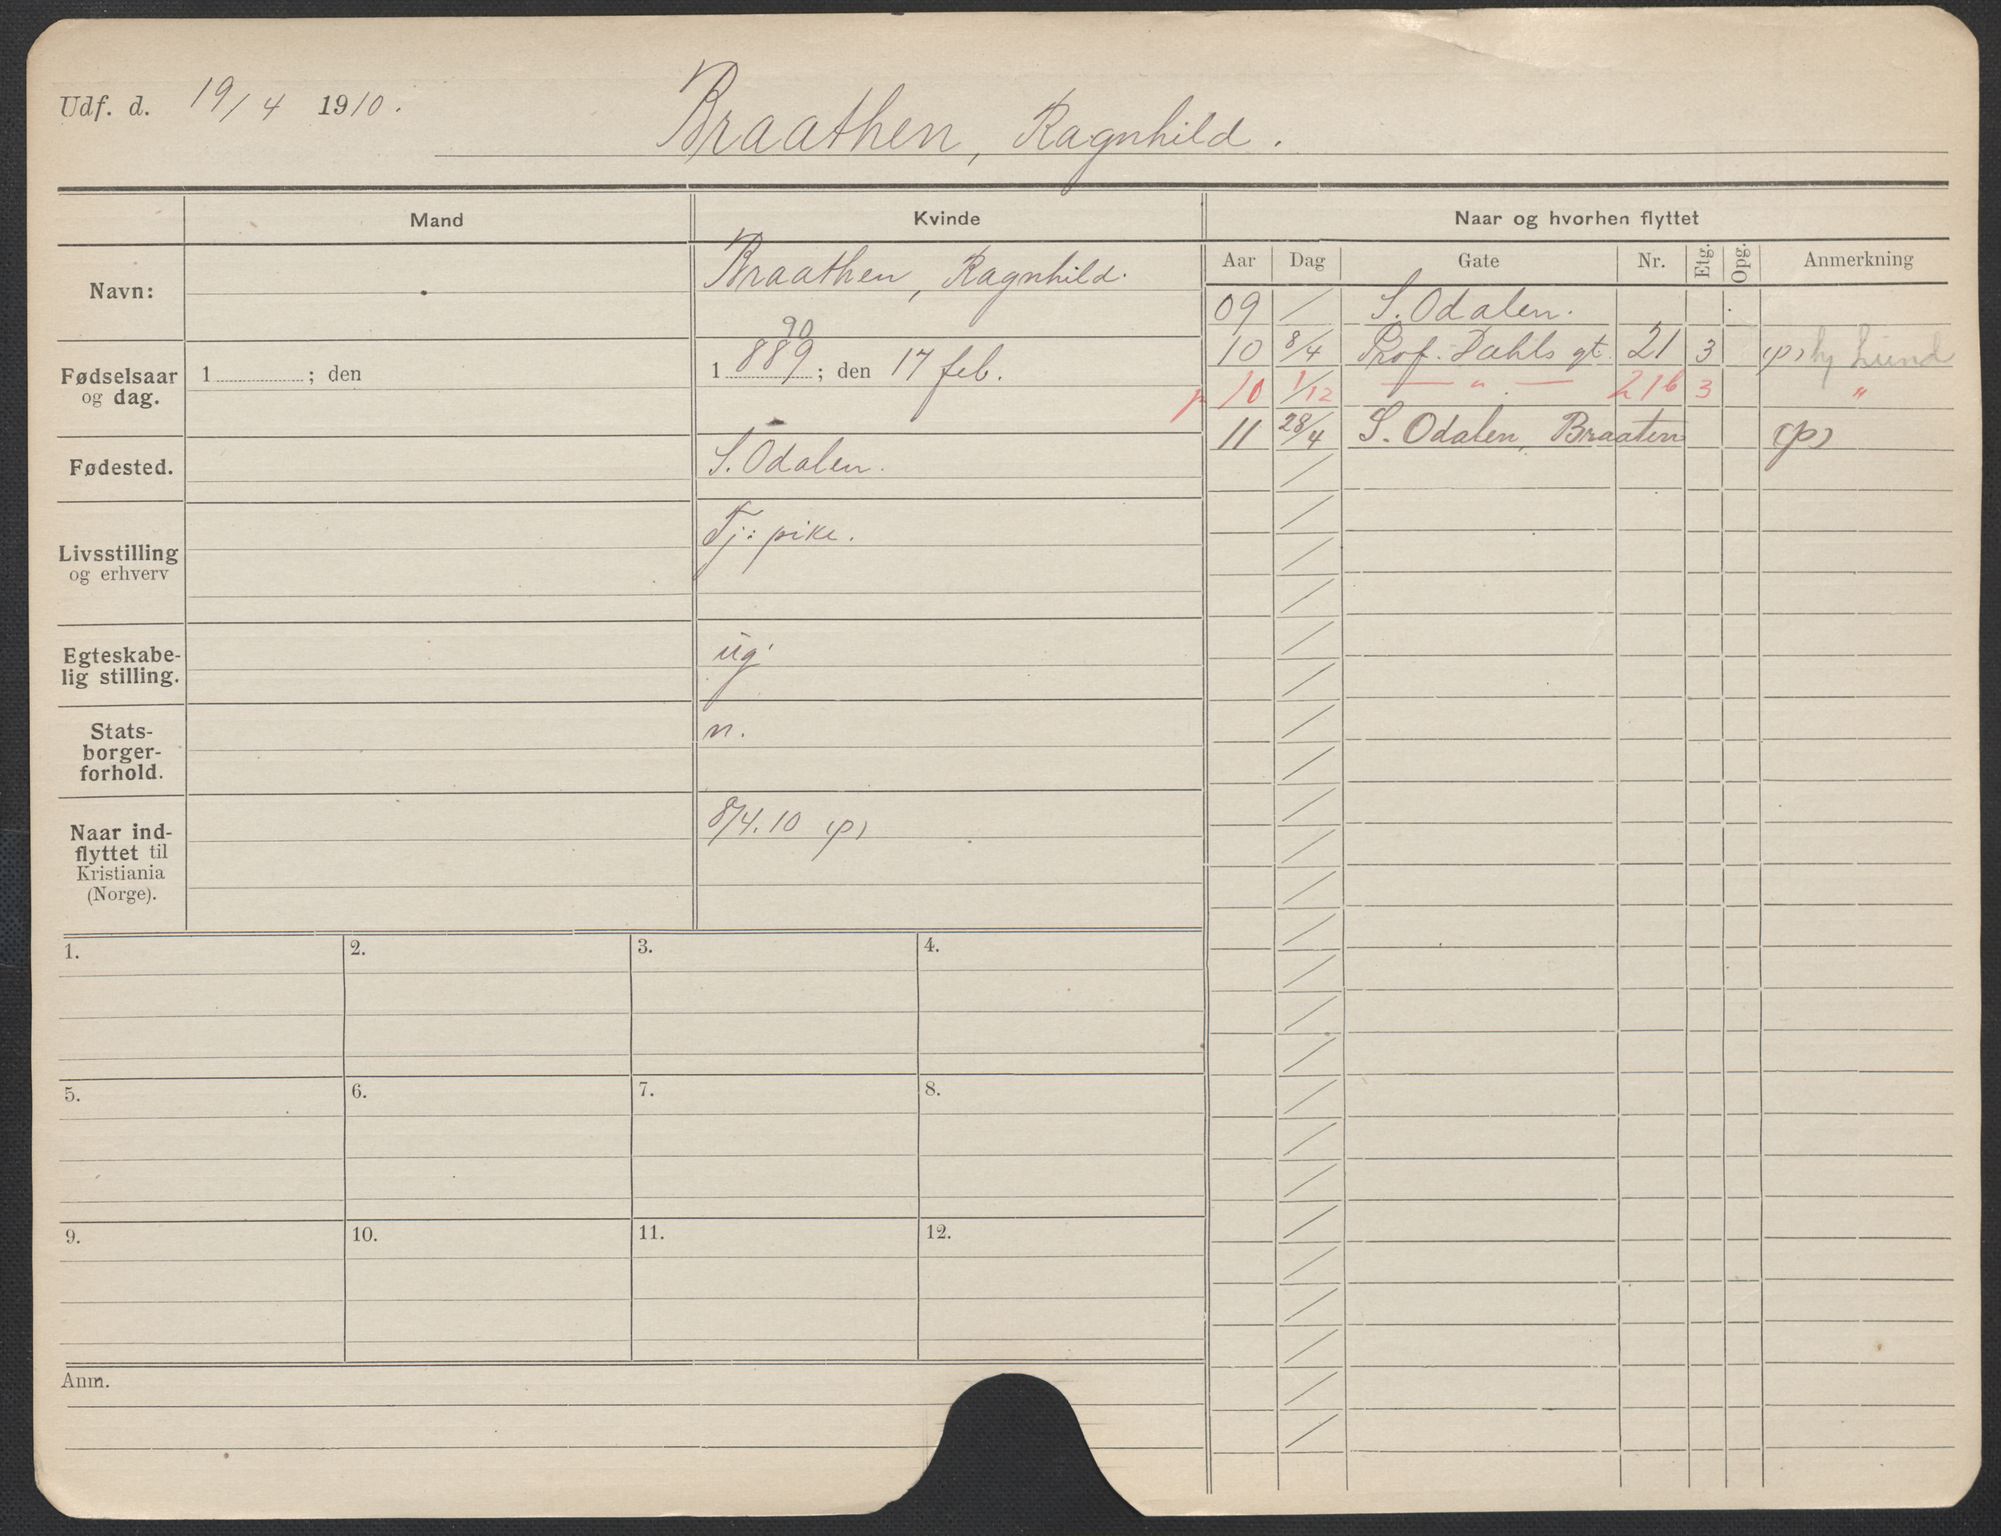 Udf. d. 19/4 1910.
Braathen, Ragnhild.
Mand
Kvinde
Naar og hvorhen flyttet
Aar Dag Gate Nr. Etg. Opg. Anmerkning
Navn:
Braathen, Ragnhild.
Fødselsaar
og dag.
1 ; den
90
1 889 ; den 17 feb.
Fødested.
S. Odalen.
Livsstilling
og erhverv
Tj: pike.
Egteskabe-
lig stilling.
ug.
Stats-
borger-
forhold.
n.
Naar ind-
flyttet til
Kristiania
(Norge).
8/4.10 (p)
09 / S. Odalen.
10 8/4 Prof. Dahls gt. 21 3 (p) hj Lund
p 10 1/12 — " — 21b 3 "
11 28/4 S. Odalen, Braaten (p)
1. 2. 3. 4.
5. 6. 7. 8.
9. 10. 11. 12.
Anm.